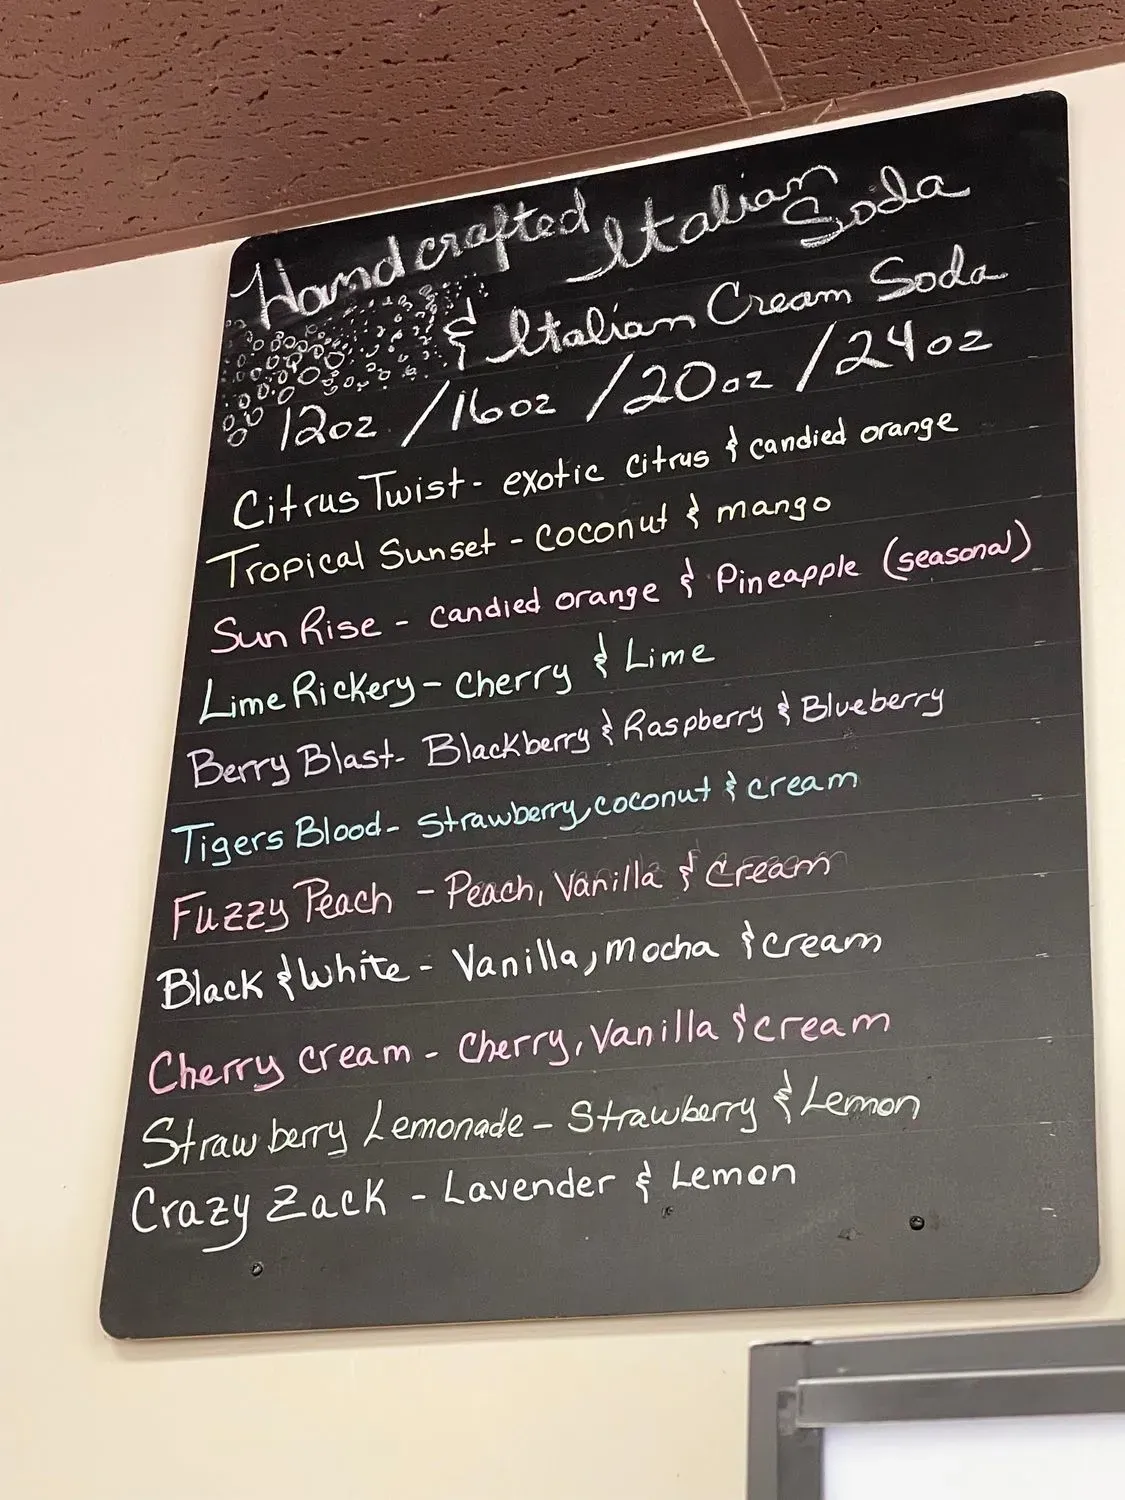 Handcrafted Italian Soda
& Italian Cream Soda
12oz / 16oz / 20oz / 24oz
Citrus Twist - exotic citrus & candied orange
Tropical Sunset - coconut & mango
Sun Rise - candied orange & Pineapple (seasonal)
Lime Rickery - cherry & Lime
Berry Blast - Blackberry & Raspberry & Blueberry
Tigers Blood - Strawberry, coconut & cream
Fuzzy Peach - Peach, Vanilla & Cream
Black & White - Vanilla, Mocha & cream
Cherry cream - Cherry, Vanilla & cream
Strawberry Lemonade - Strawberry & Lemon
Crazy Zack - Lavender & Lemon